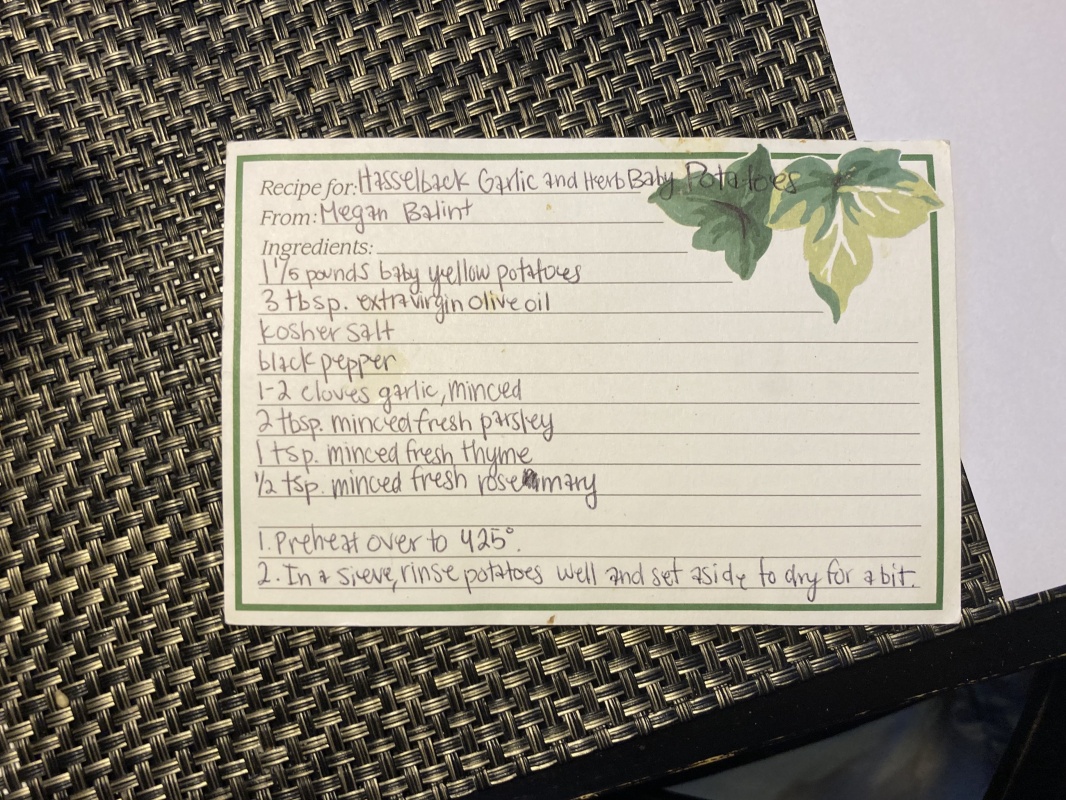 Recipe for: Hasselback Garlic and Herb Baby Potatoes
From: Megan Balint
Ingredients:
1 1/5 pounds baby yellow potatoes
3 tbsp. extra virgin olive oil
kosher salt
black pepper
1-2 cloves garlic, minced
2 tbsp. minced fresh parsley
1 tsp. minced fresh thyme
1/2 tsp. minced fresh rosemary
1. Preheat over to 425°.
2. In a sieve, rinse potatoes well and set aside to dry for a bit.